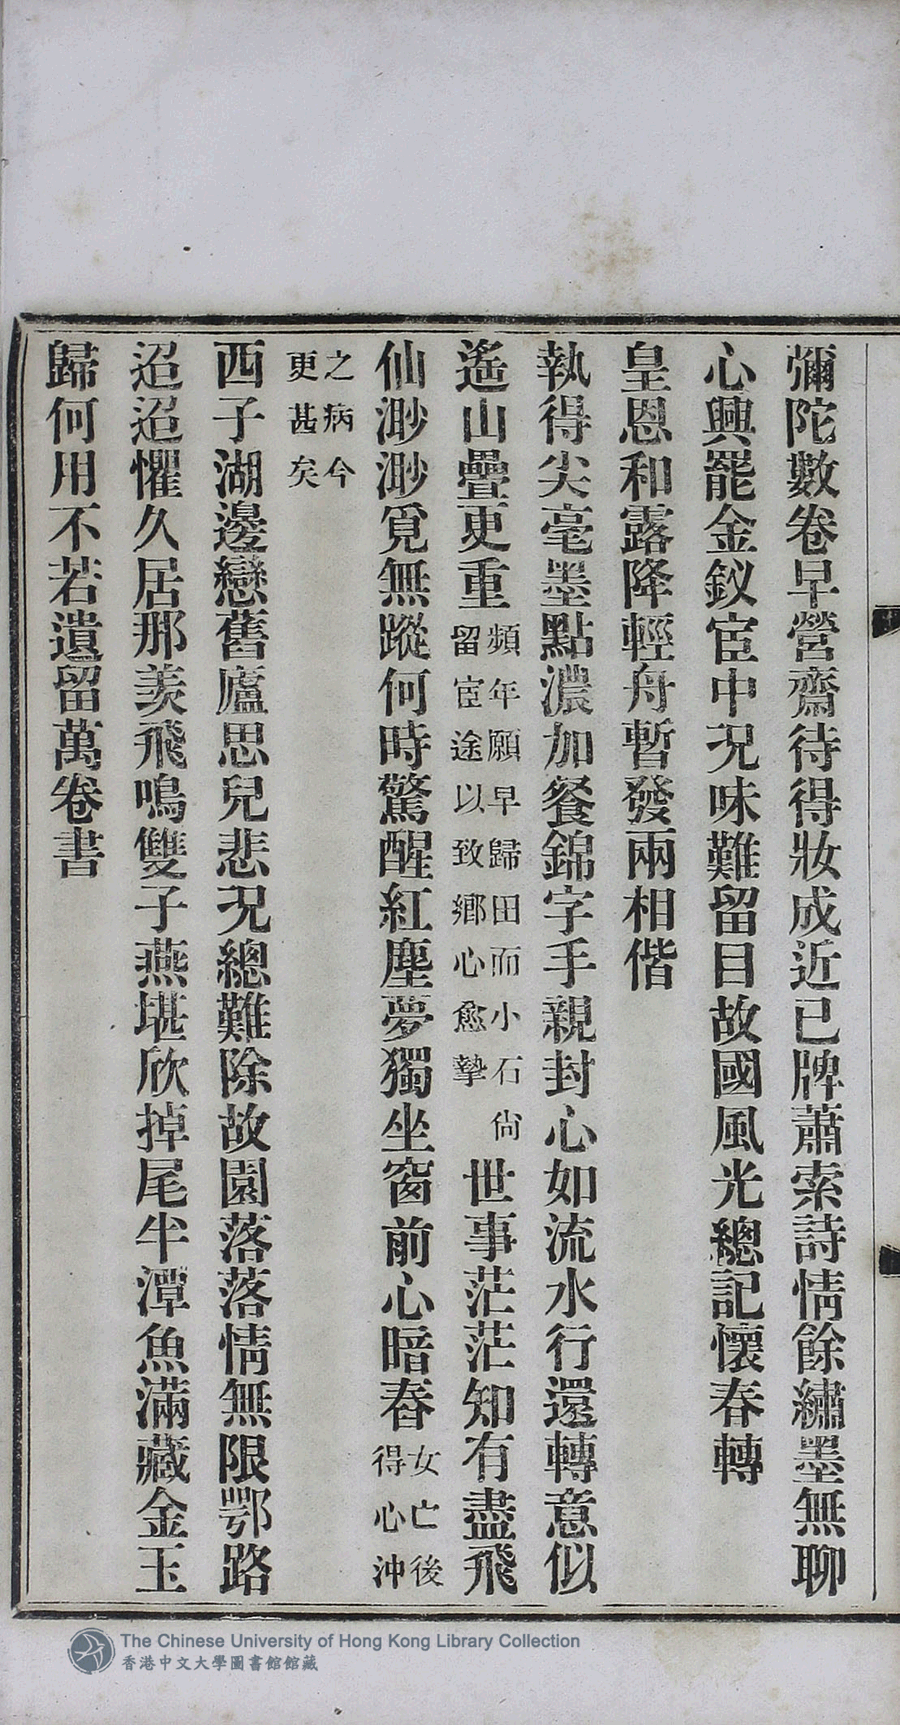 彌陀數卷早營齋待得妝成近已牌蕭索詩情餘繡墨無聊
心興罷金釵宦中况味難留目故國風光總記懷春轉
皇恩和露降輕舟暫發兩相偕
執得尖毫墨點濃加餐錦字手親封心如流水行還轉意似
遙山疊更重頻年願早歸田而小石尙留宦途以致鄉心愈摯世事茫茫知有盡飛
仙渺渺覓無蹤何時驚醒紅塵夢獨坐窗前心暗舂女亡後得心沖
之病今更甚矣
西子湖邊戀舊廬思兒悲况總難除故園落落情無限鄂路
迢迢懼久居那羨飛鳴雙子燕堪欣掉尾半潭魚滿藏金玉
歸何用不若遺留萬卷書
The Chinese University of Hong Kong Library Collection
香港中文大學圖書館館藏